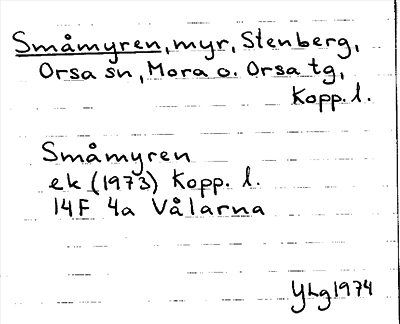 Småmyren, myr, Stenberg,
Orsa sn, Mora o. Orsa tg,
Kopp. l.
Småmyren
ek (1973) Kopp. l.
14F 4a Vålarna
YLg 1974